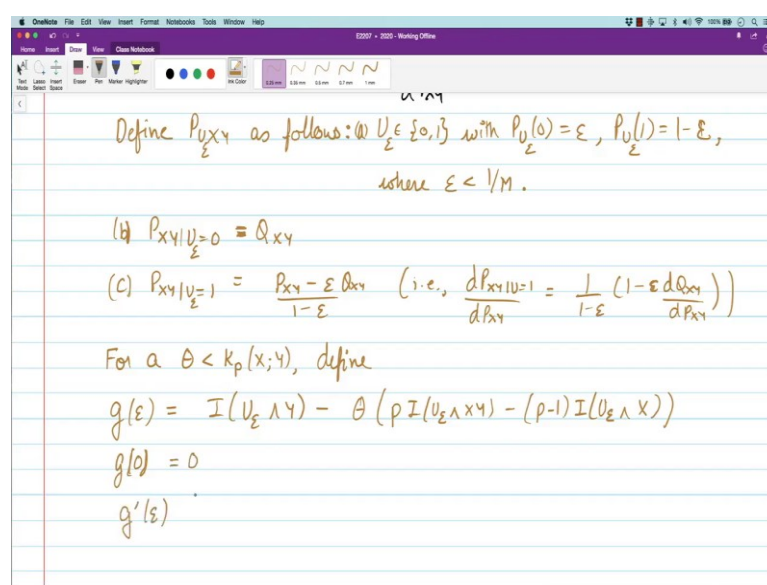 OneNote File Edit View Insert Format Notebooks Tools Window Help 100%
E2207 • 2020 - Working Offline
Home Insert Draw View Class Notebook
Text Mode Lasso Select Insert Space Eraser Pen Marker Highlighter Ink Color 0.25 mm 0.35 mm 0.5 mm 0.7 mm 1 mm
Define P_{U_ε XY} as follows: (a) U_ε ∈ {0,1} with P_{U_ε}(0) = ε, P_{U_ε}(1) = 1 - ε,
where ε < 1/M.
(b) P_{XY|U_ε=0} = Q_{XY}
(c) P_{XY|U_ε=1} = \frac{P_{XY} - ε Q_{XY}}{1-ε} (i.e., \frac{dP_{XY|U=1}}{dP_{XY}} = \frac{1}{1-ε} (1 - ε \frac{dQ_{XY}}{dP_{XY}}))
For a θ < K_p(X;Y), define
g(ε) = I(U_ε ∧ Y) - θ (p I(U_ε ∧ XY) - (p-1) I(U_ε ∧ X))
g(0) = 0
g'(ε)